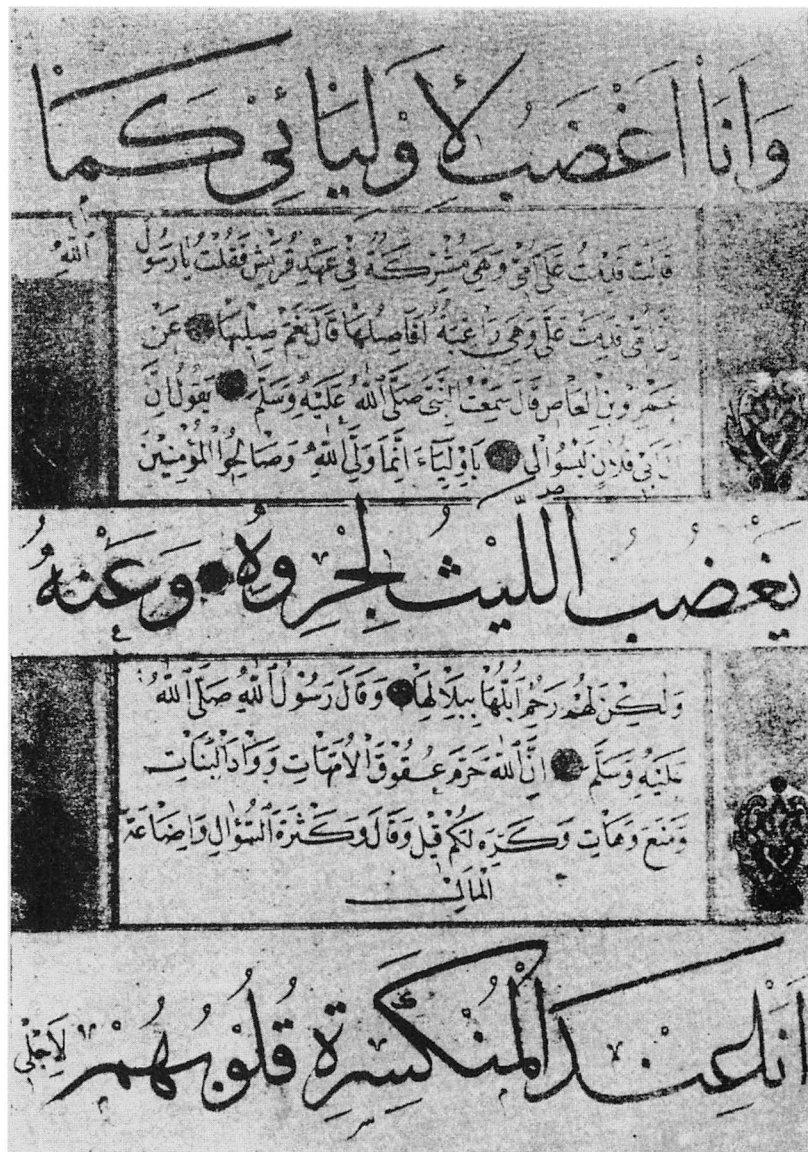 وَاَنَا اَغْضَبُ لِاَوْلِيَائِيْ كَمَا
قَالَتْ قَدِمَتْ عَلَيَّ اُمِّيْ وَهِيَ مُشْرِكَةٌ فِيْ عَهْدِ قُرَيْشٍ فَقُلْتُ يَا رَسُوْلَ
اللّٰهِ
اِنَّ اُمِّيْ قَدِمَتْ عَلَيَّ وَهِيَ رَاغِبَةٌ اَفَاَصِلُهَا قَالَ نَعَمْ صِلِيْهَا عَنْ
عَمْرِو بْنِ الْعَاصِ قَالَ سَمِعْتُ النَّبِيَّ صَلَّى اللّٰهُ عَلَيْهِ وَسَلَّمَ يَقُوْلُ اِنَّ
اٰلَ اَبِيْ فُلَانٍ لَيْسُوْا لِيْ بِاَوْلِيَاءَ اِنَّمَا وَلِيِّيَ اللّٰهُ وَصَالِحُوا الْمُؤْمِنِيْنَ
يَغْضَبُ اللَّيْثُ لِجِرْوِهٖ وَعَنْهُ
وَلٰكِنْ لَهُمْ رَحِمٌ اَبُلُّهَا بِبَلَالِهَا وَقَالَ رَسُوْلُ اللّٰهِ صَلَّى اللّٰهُ
عَلَيْهِ وَسَلَّمَ اِنَّ اللّٰهَ حَرَّمَ عُقُوْقَ الْاُمَّهَاتِ وَوَأْدَ الْبَنَاتِ
وَمَنَعَ وَهَاتِ وَكَرِهَ لَكُمْ قِيْلَ وَقَالَ وَكَثْرَةَ السُّؤَالِ وَاِضَاعَةَ
الْمَالِ
اَنَا عِنْدَ الْمُنْكَسِرَةِ قُلُوْبُهُمْ لِاَجْلِيْ